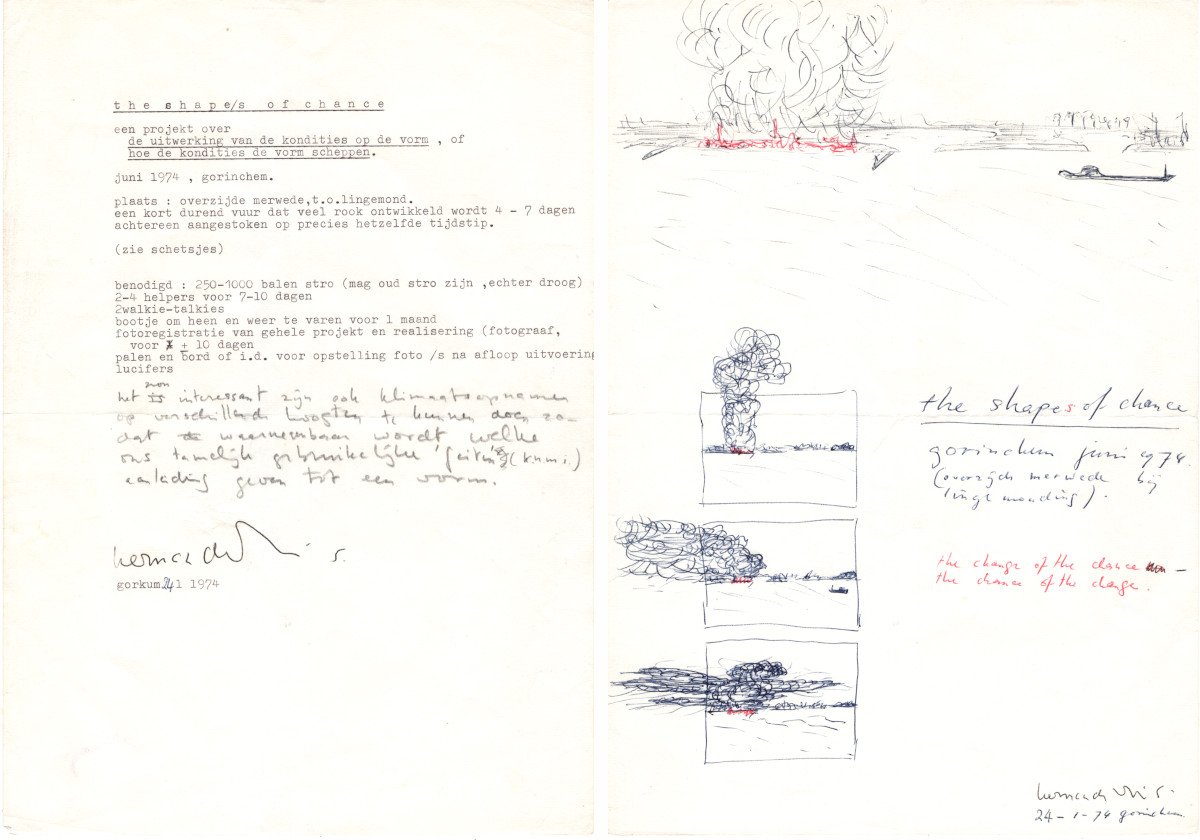 the shape/s of chance
een projekt over
de uitwerking van de kondities op de vorm , of
hoe de kondities de vorm scheppen.
juni 1974 , gorinchem.
plaats : overzijde merwede,t.o.lingemond.
een kort durend vuur dat veel rook ontwikkeld wordt 4 - 7 dagen
achtereen aangestoken op precies hetzelfde tijdstip.
(zie schetsjes)
benodigd : 250-1000 balen stro (mag oud stro zijn ,echter droog)
2-4 helpers voor 7-10 dagen
2walkie-talkies
bootje om heen en weer te varen voor 1 maand
fotoregistratie van gehele projekt en realisering (fotograaf,
voor ± 10 dagen
palen en bord of i.d. voor opstelling foto /s na afloop uitvoering
lucifers
het zou interessant zijn ook klimaatsopnamen
op verschillende hoogten te kunnen doen zo-
dat waarneembaar wordt welke
ons tamelijk gebruikelijke 'feiten' (k.n.m.i.)
aanleiding geven tot een vorm.
herman de vries.
gorkum 24 1 1974
the shapes of chance
gorinchem juni 1974.
(overzijde merwede bij
linge monding).
the change of the chance –
the chance of the change.
herman de vries.
24-1-74 gorinchem